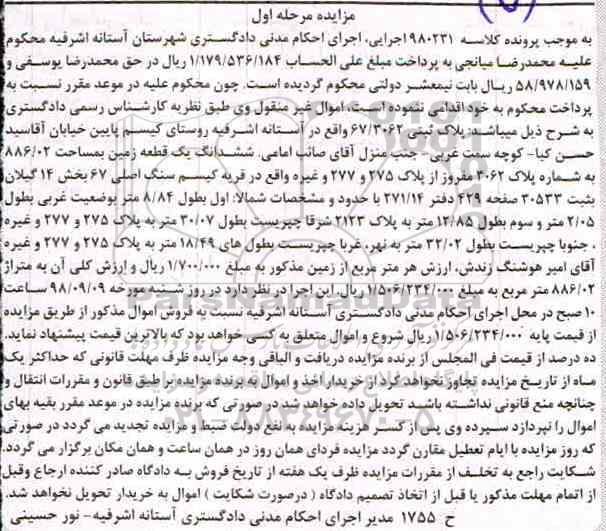 مزایده مرحله اول
به موجب پرونده کلاسه ۹۸۰۲۳۱ اجرایی، اجرای احکام مدنی دادگستری شهرستان آستانه اشرفیه محکوم
علیه محمدرضا میانجی به پرداخت مبلغ علی الحساب ۱/۱۷۹/۵۳۶/۱۸۴ ریال در حق محمدرضا یوسفی و
۵۸/۹۷۸/۱۵۹ ریال بابت نیمعشر دولتی محکوم گردیده است. چون محکوم علیه در موعد مقرر نسبت به
پرداخت محکوم به خود اقدامی ننموده است، اموال غیر منقول وی طبق نظریه کارشناس رسمی دادگستری
به شرح ذیل میباشد: پلاک ثبتی ۶۷/۳۰۶۲ واقع در آستانه اشرفیه روستای کیسم پایین خیابان آقاسید
حسن کیا- کوچه سمت غربی- جنب منزل آقای صائب امامی. ششدانگ یک قطعه زمین بمساحت ۸۸۶/۰۲
به شماره پلاک ۳۰۶۲ مفروز از پلاک ۲۷۵ و ۲۷۷ و غیره واقع در قریه کیسم سنگ اصلی ۶۷ بخش ۱۴ گیلان
بثبت ۳۰۵۳۳ صفحه ۴۲۹ دفتر ۲۷۱/۱۴ با حدود و مشخصات شمالا: اول بطول ۸/۸۴ متر بوضعیت غربی بطول
۲/۰۵ متر و سوم بطول ۱۲/۸۵ متر به پلاک ۲۱۲۳ شرقا چپریست بطول ۳۰/۰۷ متر به پلاک ۲۷۵ و ۲۷۷ و غیره
، جنوبا چپریست بطول ۳۲/۰۲ متر به نهر، غربا چپریست بطول های ۱۸/۴۹ متر به پلاک ۲۷۵ و ۲۷۷ و غیره
آقای امیر هوشنگ زندش، ارزش هر متر مربع از زمین مذکور به مبلغ ۱/۷۰۰/۰۰۰ ریال و ارزش کلی آن به متراژ
۸۸۶/۰۲ متر مربع به مبلغ ۱/۵۰۶/۲۳۴/۰۰۰ ریال. این اجرا در نظر دارد در روز شنبه مورخه ۹۸/۰۹/۰۹ ساعت
۱۰ صبح در محل اجرای احکام مدنی دادگستری آستانه اشرفیه نسبت به فروش اموال مذکور از طریق مزایده
از قیمت پایه ۱/۵۰۶/۲۳۴/۰۰۰ ریال شروع و اموال متعلق به کسی خواهد بود که بالاترین قیمت پیشنهاد نماید.
ده درصد از قیمت فی المجلس از برنده مزایده دریافت و الباقی وجه مزایده ظرف مهلت قانونی که حداکثر یک
ماه از تاریخ مزایده تجاوز نخواهد کرد از خریدار اخذ و اموال به برنده مزایده بر طبق قانون و مقررات انتقال و
چنانچه منع قانونی نداشته باشد تحویل داده خواهد شد در صورتی که برنده مزایده در موعد مقرر بقیه بهای
اموال را نپردازد سپرده وی پس از کسر هزینه مزایده به نفع دولت ضبط و مزایده تجدید می گردد در صورتی
که روز مزایده با ایام تعطیل مقارن گردد مزایده فردای همان روز در همان ساعت و همان مکان برگزار می گردد.
شکایت راجع به تخلف از مقررات مزایده ظرف یک هفته از تاریخ فروش به دادگاه صادر کننده ارجاع وقبل
از اتمام مهلت مذکور یا قبل از اتخاذ تصمیم دادگاه ( درصورت شکایت ) اموال به خریدار تحویل نخواهد شد.
ح ۱۷۵۵ مدیر اجرای احکام مدنی دادگستری آستانه اشرفیه- نور حسینی